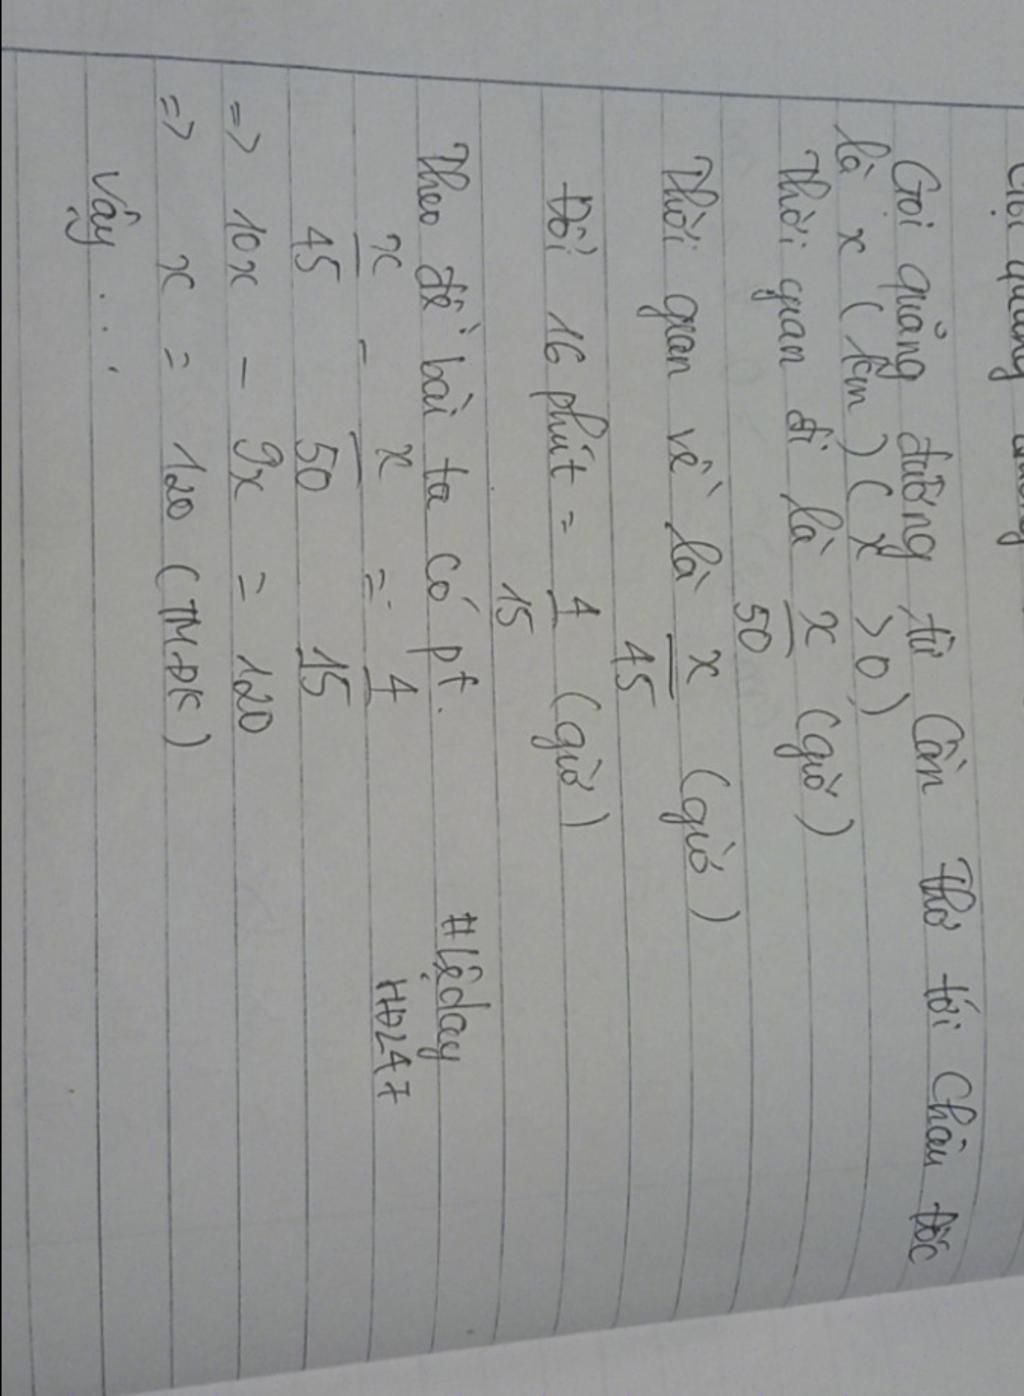 Gọi quãng đường từ Cần Thơ tới Châu Đốc
là x (km) (x > 0)
Thời gian đi là x/50 (giờ)
Thời gian về là x/45 (giờ)
Đổi 16 phút = 4/15 (giờ)
Theo đề bài ta có pt.
x/45 - x/50 = 4/15
=> 10x - 9x = 120
=> x = 120 (TMĐK)
Vậy ....
#Lệday
HĐ247